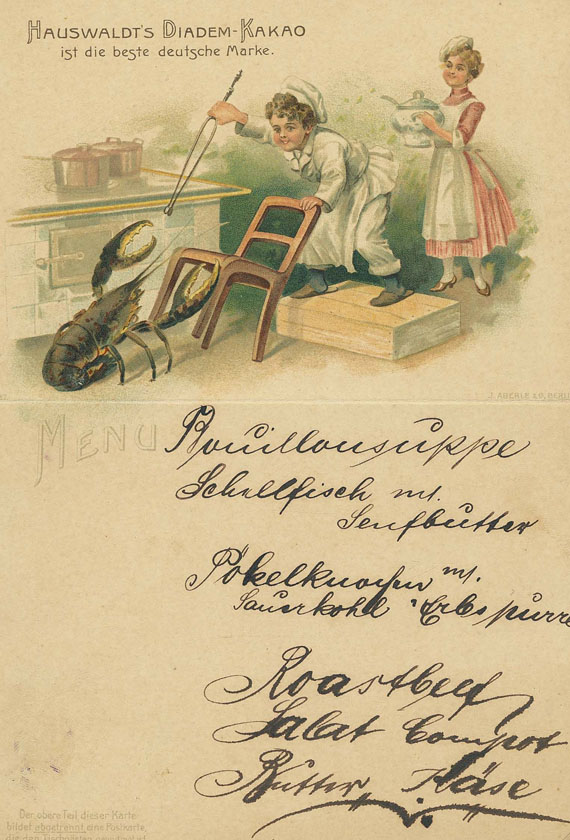 HAUSWALDT'S DIADEM-KAKAO
ist die beste deutsche Marke.
MENU
Bouillonsuppe
Schellfisch mt.
Senfbutter
Pökelknochen mt.
Sauerkohl Erbspurre
Roastbeef
Salat Compot
Butter, Käse
Der obere Teil dieser Karte
bildet abgetrennt eine Postkarte,